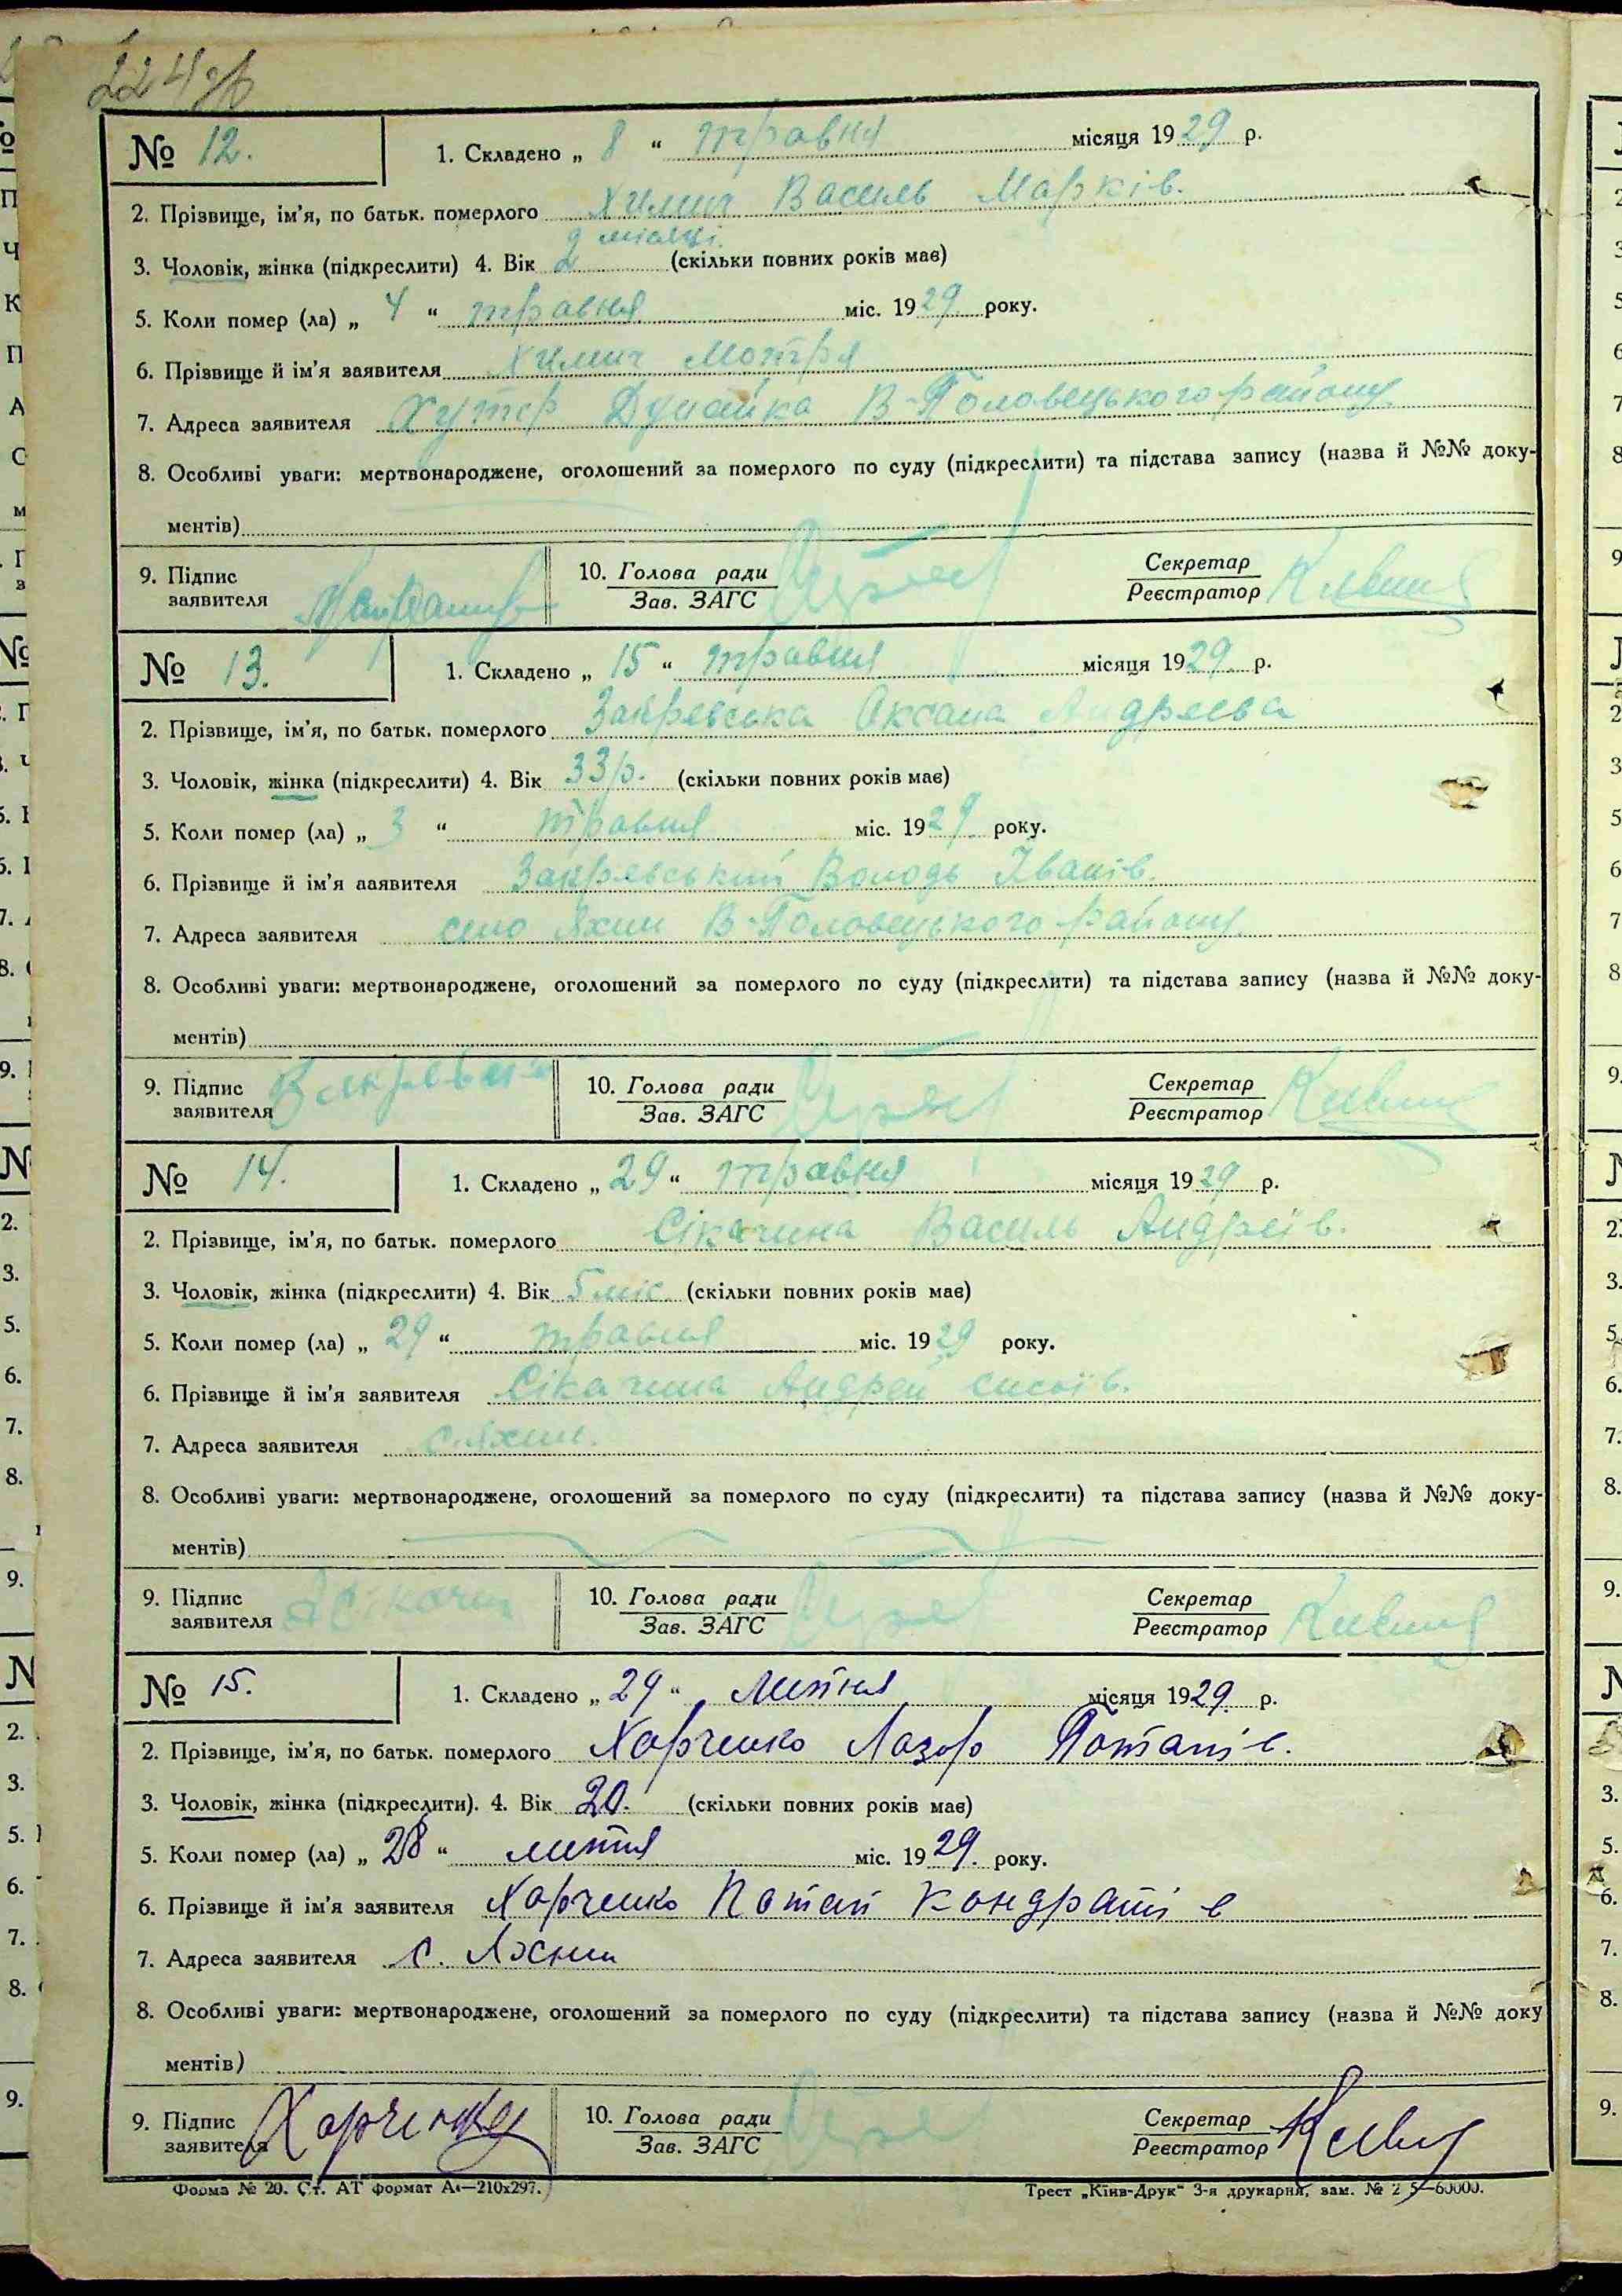 224 зв
№ 12. 1. Складено „ 8 “ травня місяця 1929 р.
2. Прізвище, ім’я, по батьк. померлого Химич Василь Марків.
3. Чоловік, жінка (підкреслити) 4. Вік 2 місяці. (скільки повних років має)
5. Коли помер (ла) „ 4 “ травня міс. 1929 року.
6. Прізвище й ім’я заявителя Химич Мотря
7. Адреса заявителя Хутер Дунайка В-Половецького району
8. Особливі уваги: мертвонароджене, оголошений за померлого по суду (підкреслити) та підстава запису (назва й №№ доку-
ментів)
9. Підпис заявителя 10. Голова ради Зав. ЗАГС Секретар Реєстратор
№ 13. 1. Складено „ 15 “ травня місяця 1929. р.
2. Прізвище, ім’я, по батьк. померлого Закревська Оксана Андреєва
3. Чоловік, жінка (підкреслити) 4. Вік 33 р. (скільки повних років має)
5. Коли помер (ла) „ 3 “ травня міс. 1929. року.
6. Прізвище й ім’я ааявителя Закревський Володь Іванів.
7. Адреса заявителя село Яхни В-Половецького району.
8. Особливі уваги: мертвонароджене, оголошений за померлого по суду (підкреслити) та підстава запису (назва й №№ доку-
ментів)
9. Підпис заявителя 10. Голова ради Зав. ЗАГС Секретар Реєстратор
№ 14. 1. Складено „ 29 “ травня місяця 1929 р.
2. Прізвище, ім’я, по батьк. померлого Сікачина Василь Андреїв.
3. Чоловік, жінка (підкреслити) 4. Вік 5 міс. (скільки повних років має)
5. Коли помер (ла) „ 29 “ травня міс. 1929 року.
6. Прізвище й ім’я заявителя Сікачина Андрей Сисоїв.
7. Адреса заявителя с. Яхни.
8. Особливі уваги: мертвонароджене, оголошений за померлого по суду (підкреслити) та підстава запису (назва й №№ доку-
ментів)
9. Підпис заявителя 10. Голова ради Зав. ЗАГС Секретар Реєстратор
№ 15. 1. Складено „ 29 “ липня місяця 1929. р.
2. Прізвище, ім’я, по батьк. померлого Харченко Лазор Потапів.
3. Чоловік, жінка (підкреслити). 4. Вік 20. (скільки повних років має)
5. Коли помер (ла) „ 28 “ липня міс. 1929. року.
6. Прізвище й ім’я заявителя Харченко Потап Кондратів
7. Адреса заявителя с. Яхни
8. Особливі уваги: мертвонароджене, оголошений за померлого по суду (підкреслити) та підстава запису (назва й №№ доку
ментів)
9. Підпис заявителя Харченко 10. Голова ради Зав. ЗАГС Секретар Реєстратор
Форма № 20. Ст. АТ формат А4—210х297. Трест „Київ-Друк“ 3-я друкарня, зам. №